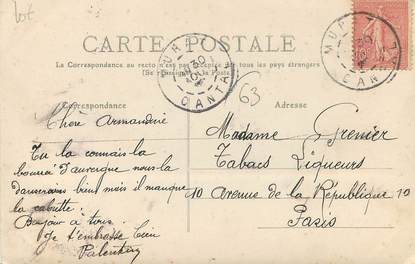 Lot
CARTE POSTALE
La Correspondance au recto n'est pas acceptée par tous les pays étrangers
(Se renseigner à la Poste)
MURAT
30
CANTAL
MURAT
30
CANTAL
63
Correspondance
Adresse
Chère Armandine
Tu la connais la
bourrée d'auvergne nous la
danserons bien mais il manque
la cabrette.
Bonjour à tous.
Je t'embrasse bien
Valentin
Madame Grenier
Tabacs Liqueurs
10 Avenue de la République 10
Paris